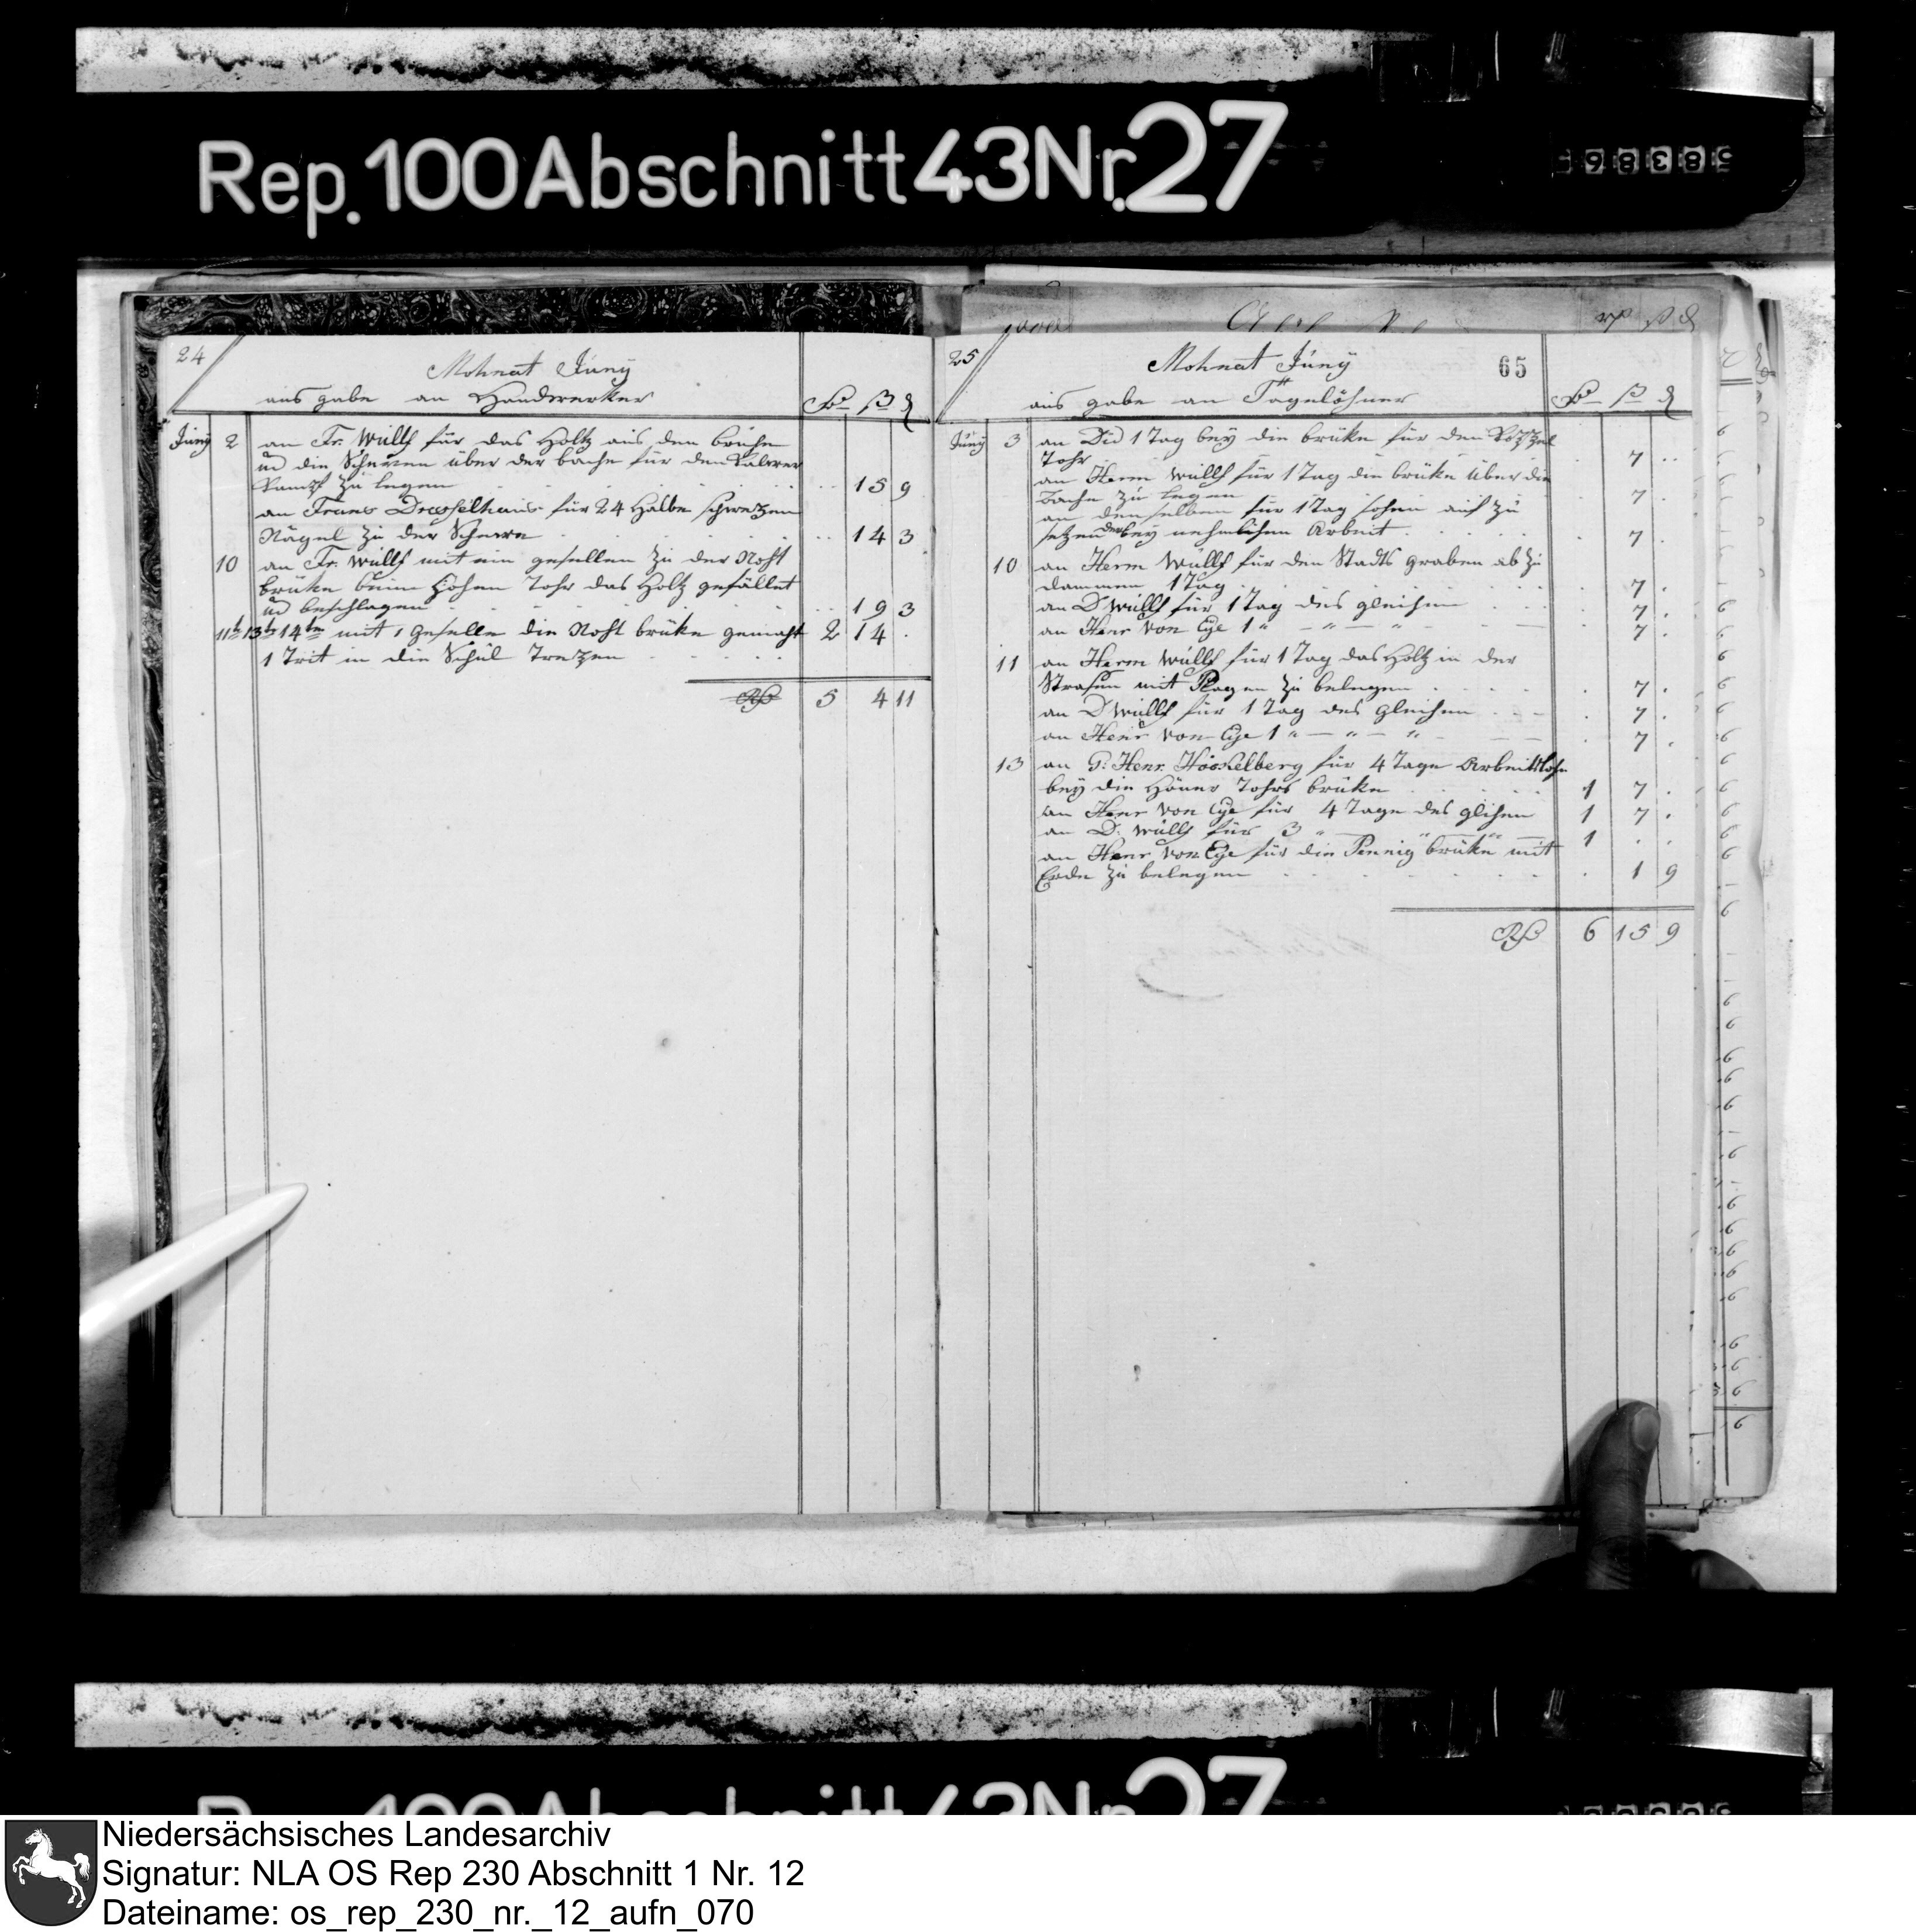 Rep. 100 Abschnitt 43 Nr. 27
58386
24
Mohnat Juny
aus gabe an Handwerker
Juny 2 an Fr. Wulff für das Holtz aus den brühe
un die Scherren über der bache für den
zu legen 15 9
an Frans Drosselhaus für 24 Halbe schwetzen
Nägel zu der Scherre 14 3
10 an Fr. Wulff mit ein gesellen zu der Noht
brüke beim Hohen Tohr das Holtz gefället
un beschlagen 19 3
11t 13t 14ten mit 1 geselle die Noht brüke gemaht 2 14
1 Trit in die Schul Tretzen
5 4 11
25
Mohnat Juny
65
aus gabe an Tägelöhner
Juny 3 an Did 1 Tag bey die brüke für den
Tohr 7
an Herm Wulff für 1 Tag die brüke über die
Bache zu legen 7
an denselben für 1 Tag sohen auf zu
setzen bey nehmlichen Arbeit 7
10 an Herm Wulff für den Stadts graben ab zu
dammen 1 Tag 7
an D Wulff für 1 Tag des gleichen 7
an Henr von Eye 1 " — " — " 7
11 an Herm Wulff für 1 Tag das Holtz in der
Strasen mit Plagen zu belegen 7
an D Wulff für 1 Tag des gleichen 7
an Henr von Eye 1 " — " — " 7
13 an G. Henr. Hösselberg für 4 Tage Arbeitslohn
bey die Höner Tohrs brüke 1 7
an Henr von Eye für 4 Tage des glichen 1 7
an D. Wulff für 3 " 1
an Henr von Eye für die Pennig brüke mit
Erde zu belegen 1 9
6 15 9
Niedersächsisches Landesarchiv
Signatur: NLA OS Rep 230 Abschnitt 1 Nr. 12
Dateiname: os_rep_230_nr._12_aufn_070